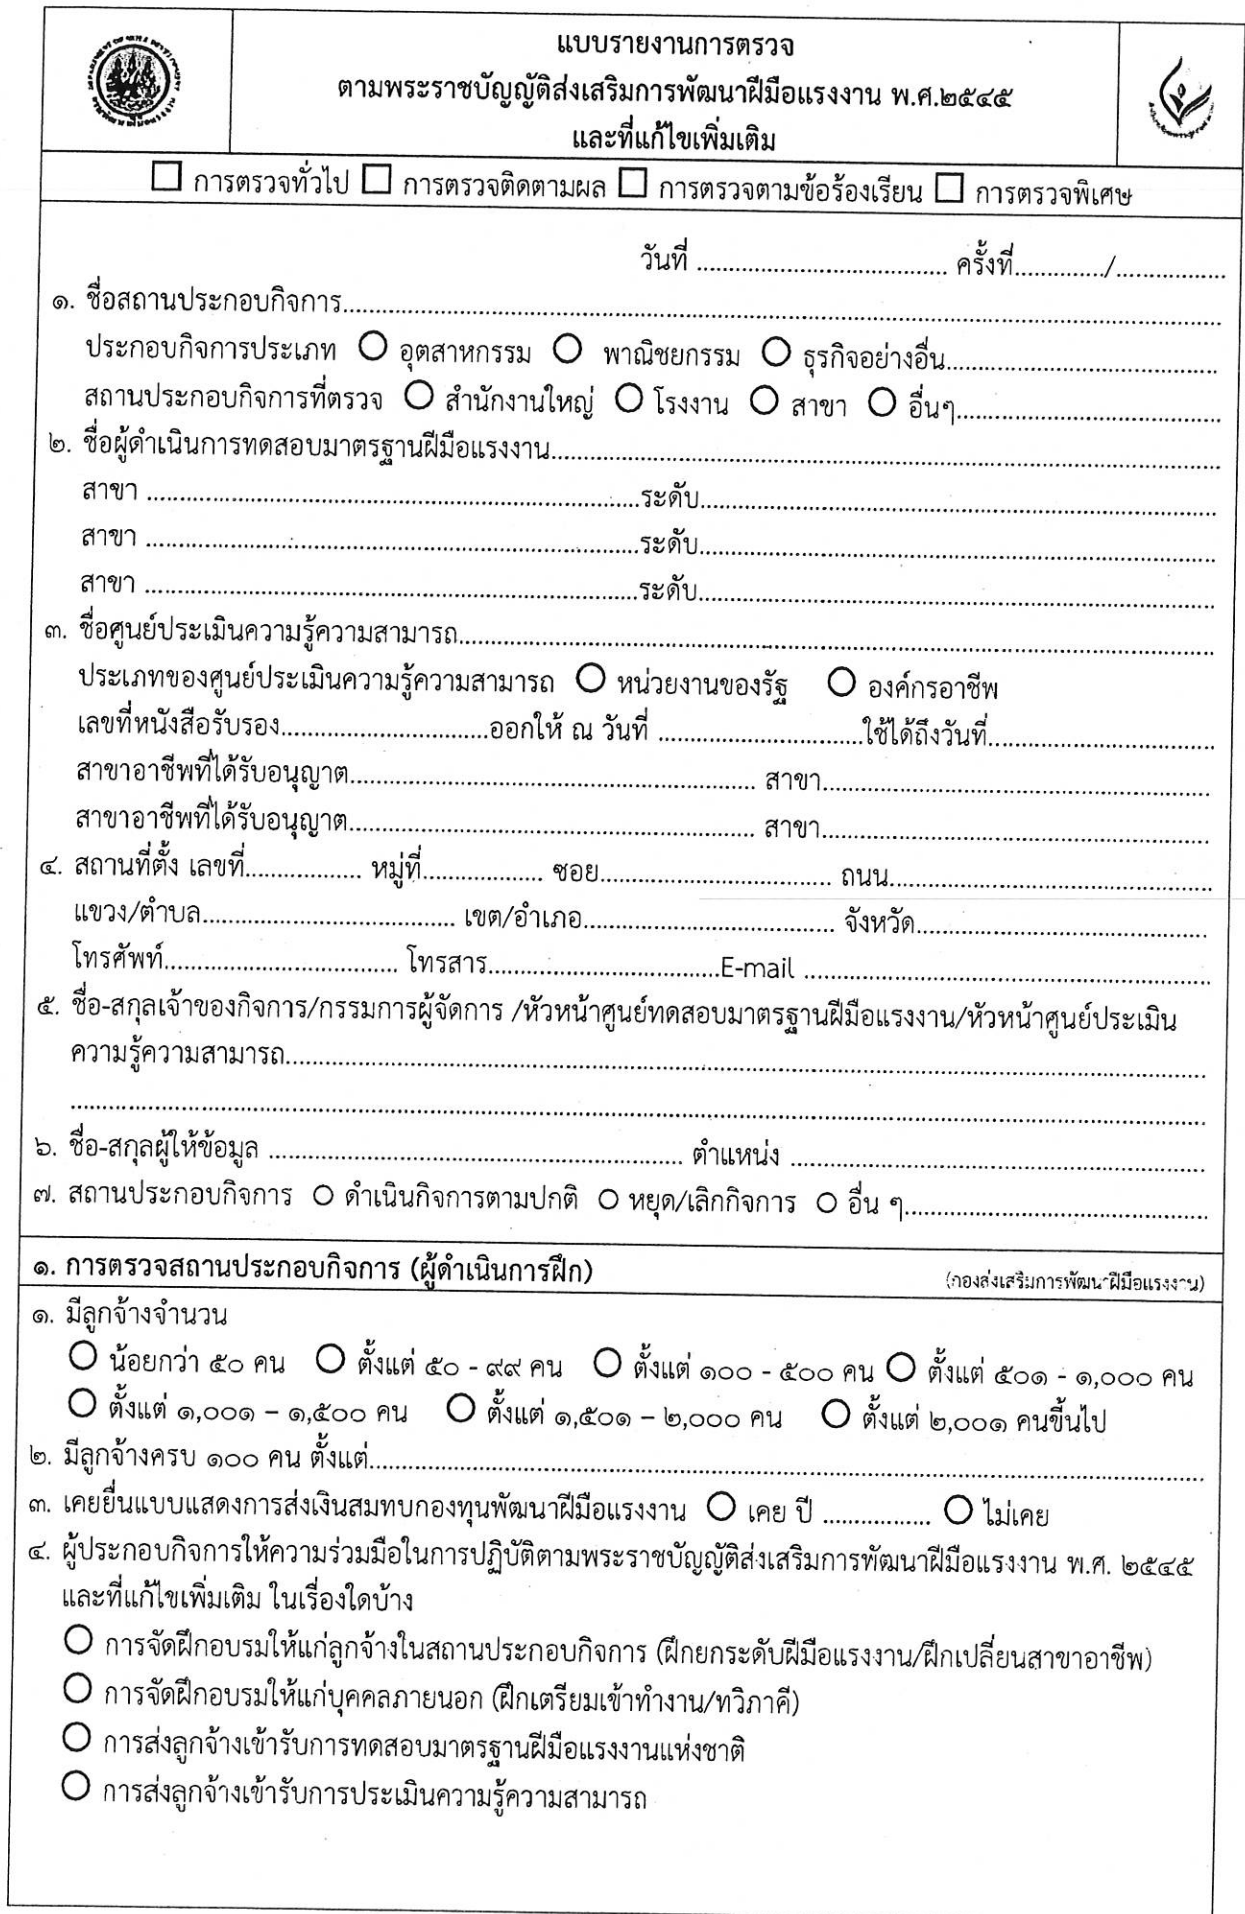 แบบรายงานการตรวจ
ตามพระราชบัญญัติส่งเสริมการพัฒนาฝีมือแรงงาน พ.ศ.๒๕๔๕
และที่แก้ไขเพิ่มเติม
☐ การตรวจทั่วไป ☐ การตรวจติดตามผล ☐ การตรวจตามข้อร้องเรียน ☐ การตรวจพิเศษ
วันที่ .................................... ครั้งที่............./................
๑. ชื่อสถานประกอบกิจการ....................................................................................................
ประกอบกิจการประเภท ○ อุตสาหกรรม ○ พาณิชยกรรม ○ ธุรกิจอย่างอื่น.......................................
สถานประกอบกิจการที่ตรวจ ○ สำนักงานใหญ่ ○ โรงงาน ○ สาขา ○ อื่นๆ......................................
๒. ชื่อผู้ดำเนินการทดสอบมาตรฐานฝีมือแรงงาน....................................................................
สาขา ......................................................................ระดับ..........................................................................
สาขา ......................................................................ระดับ..........................................................................
สาขา ......................................................................ระดับ..........................................................................
๓. ชื่อศูนย์ประเมินความรู้ความสามารถ....................................................................................
ประเภทของศูนย์ประเมินความรู้ความสามารถ ○ หน่วยงานของรัฐ ○ องค์กรอาชีพ
เลขที่หนังสือรับรอง..............................ออกให้ ณ วันที่ .............................ใช้ได้ถึงวันที่................................
สาขาอาชีพที่ได้รับอนุญาต.......................................................... สาขา........................................................
สาขาอาชีพที่ได้รับอนุญาต.......................................................... สาขา........................................................
๔. สถานที่ตั้ง เลขที่................. หมู่ที่................. ซอย................................. ถนน..............................................
แขวง/ตำบล.................................... เขต/อำเภอ.................................... จังหวัด..........................................
โทรศัพท์................................. โทรสาร.................................E-mail ..........................................................
๕. ชื่อ-สกุลเจ้าของกิจการ/กรรมการผู้จัดการ /หัวหน้าศูนย์ทดสอบมาตรฐานฝีมือแรงงาน/หัวหน้าศูนย์ประเมิน
ความรู้ความสามารถ....................................................................................................
....................................................................................................
๖. ชื่อ-สกุลผู้ให้ข้อมูล ............................................................ ตำแหน่ง ............................................................
๗. สถานประกอบกิจการ ○ ดำเนินกิจการตามปกติ ○ หยุด/เลิกกิจการ ○ อื่น ๆ............................................
๑. การตรวจสถานประกอบกิจการ (ผู้ดำเนินการฝึก) (กองส่งเสริมการพัฒนาฝีมือแรงงาน)
๑. มีลูกจ้างจำนวน
○ น้อยกว่า ๕๐ คน ○ ตั้งแต่ ๕๐ - ๙๙ คน ○ ตั้งแต่ ๑๐๐ - ๕๐๐ คน ○ ตั้งแต่ ๕๐๑ - ๑,๐๐๐ คน
○ ตั้งแต่ ๑,๐๐๑ – ๑,๕๐๐ คน ○ ตั้งแต่ ๑,๕๐๑ – ๒,๐๐๐ คน ○ ตั้งแต่ ๒,๐๐๑ คนขึ้นไป
๒. มีลูกจ้างครบ ๑๐๐ คน ตั้งแต่....................................................................................................
๓. เคยยื่นแบบแสดงการส่งเงินสมทบกองทุนพัฒนาฝีมือแรงงาน ○ เคย ปี ................ ○ ไม่เคย
๔. ผู้ประกอบกิจการให้ความร่วมมือในการปฏิบัติตามพระราชบัญญัติส่งเสริมการพัฒนาฝีมือแรงงาน พ.ศ. ๒๕๔๕
และที่แก้ไขเพิ่มเติม ในเรื่องใดบ้าง
○ การจัดฝึกอบรมให้แก่ลูกจ้างในสถานประกอบกิจการ (ฝึกยกระดับฝีมือแรงงาน/ฝึกเปลี่ยนสาขาอาชีพ)
○ การจัดฝึกอบรมให้แก่บุคคลภายนอก (ฝึกเตรียมเข้าทำงาน/ทวิภาคี)
○ การส่งลูกจ้างเข้ารับการทดสอบมาตรฐานฝีมือแรงงานแห่งชาติ
○ การส่งลูกจ้างเข้ารับการประเมินความรู้ความสามารถ